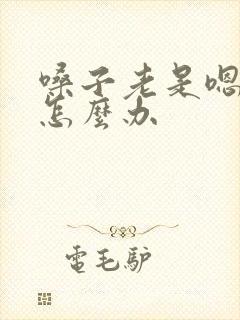 嗓子老是嗯
怎麼办
電毛驴